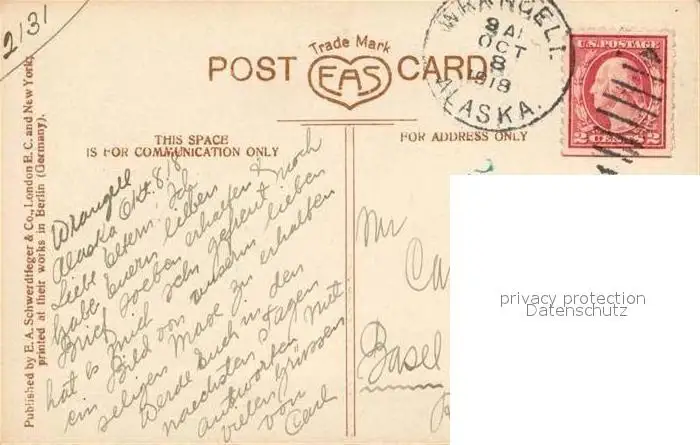 2131
Trade Mark
POST EAS CARD
WRANGELL
OCT
8
1918
ALASKA.
U.S. POSTAGE
2 CENTS 2
THIS SPACE
IS FOR COMMUNICATION ONLY
FOR ADDRESS ONLY
Published by E. A. Schwerdtfeger & Co., London E. C. and New York,
printed at their works in Berlin (Germany).
Wrangell
Alaska Okt. 8, 18
Liebe Eltern. Ich
habe Euern lieben
Brief soeben erhalten &
hat es mich sehr gefreut noch
ein Bild von unserm lieben
seligen Max zu erhalten
Werde Euch in den
naechsten Tagen
antworten Mit
vielen Grüssen
von
Carl
Mr
Ca
Basel
privacy protection
Datenschutz